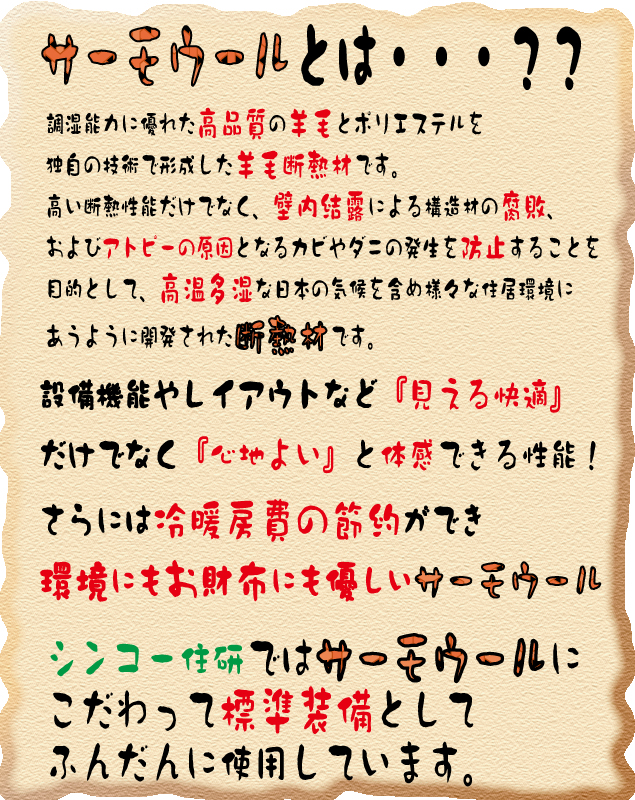 サーモウールとは・・・??
調湿能力に優れた高品質の羊毛とポリエステルを
独自の技術で形成した羊毛断熱材です。
高い断熱性能だけでなく、壁内結露による構造材の腐敗、
およびアトピーの原因となるカビやダニの発生を防止することを
目的として、高温多湿な日本の気候を含め様々な住居環境に
あうように開発された断熱材です。
設備機能やレイアウトなど『見える快適』
だけでなく『心地よい』と体感できる性能!
さらには冷暖房費の節約ができ
環境にもお財布にも優しいサーモウール
シンコー住研ではサーモウールに
こだわって標準装備として
ふんだんに使用しています。